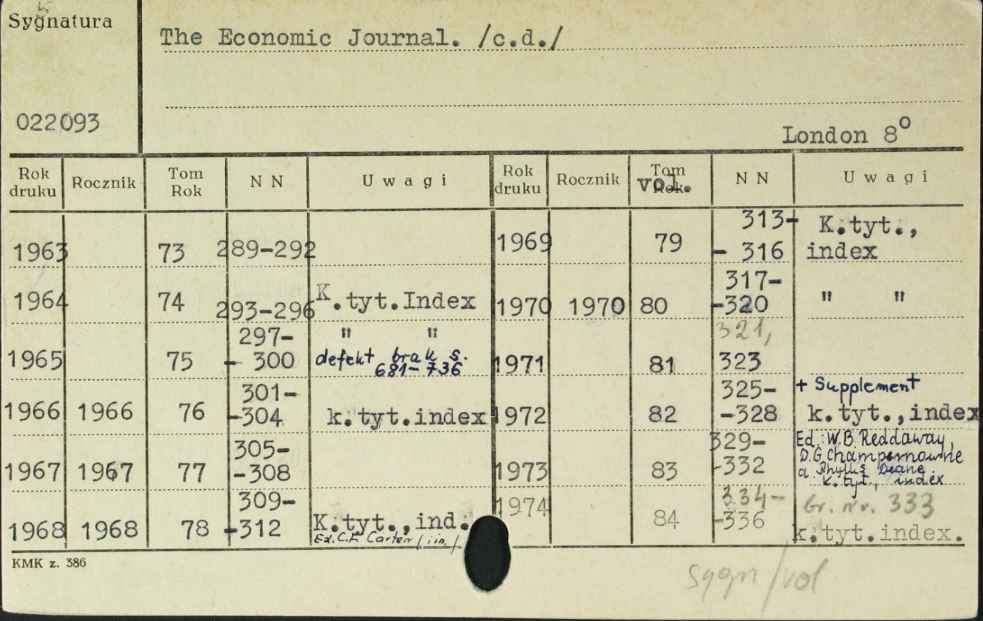 Sygnatura
The Economic Journal. /c.d./
022093
London 8°
Rok druku Rocznik Tom Rok N N Uwagi Rok druku Rocznik Tom Rok vol. N N Uwagi
1963 73 289-292
1964 74 293-296 K.tyt.Index
1965 75 297- - 300 " "
defekt brak s. 681-736
1966 1966 76 301- -304 k.tyt.index
1967 1967 77 305- -308
1968 1968 78 309- -312 K.tyt.,ind.
Ed. C.F. Carter /i in./
1969 79 313- - 316 K.tyt., index
1970 1970 80 317- -320 " "
1971 81 321, 323
1972 82 325- -328 + Supplement
k.tyt.,index
1973 83 329- -332 Ed: W.B. Reddaway,
D.G. Champernowne
a Phyllis Deane.
k.tyt., index
1974 84 334- -336 br. nr. 333
k.tyt.index.
KMK z. 386
sygn/vol